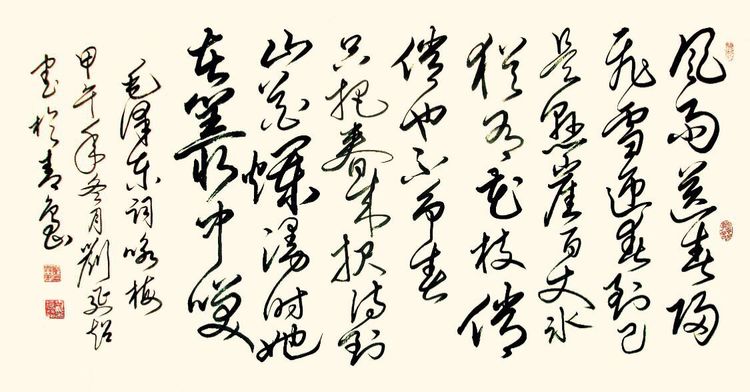 风雨送春归
飞雪迎春到已
是悬崖百丈冰
犹有花枝俏
俏也不争春
只把春来报待到
山花烂漫时她
在叢中笑
毛泽东词咏梅
甲午年冬月劉延
书於青岛